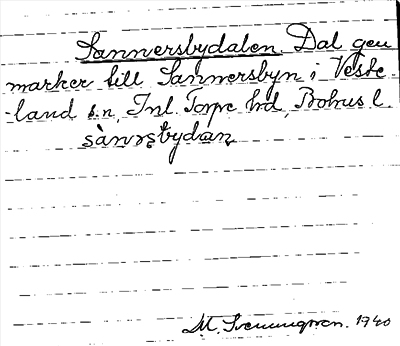 Sannersbydalen. Dal gen
marker till Sannersbyn i Veste-
land s.n, Inl. Torpe hd, Bohus l.
sànəʂbydan
M. Svenungsson. 1940